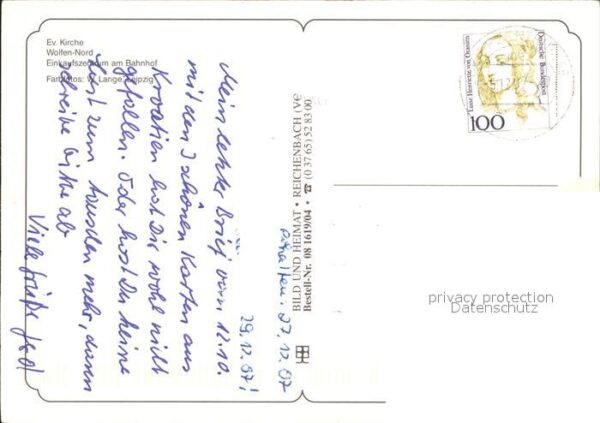 Ev. Kirche
Wolfen-Nord
Einkaufszentrum am Bahnhof
Farbfotos: W. Lange, Leipzig
Mein letzter Brief vom 12.10.
mit den 3 schönen Karten aus
Kroatien hast Dir wohl nicht
gefallen. Oder hast Du keine
Lust zum tauschen mehr, dann
schreibe bitte ab
Viele Grüße
29.12.97!
erhalten: 27.12.97
BILD UND HEIMAT • REICHENBACH (V
Bestell-Nr. 08 1619/04 • ☎ (0 37 65) 52 83 00
Luise Henriette von Oranien
Deutsche Bundespost
100
privacy protection
Datenschutz